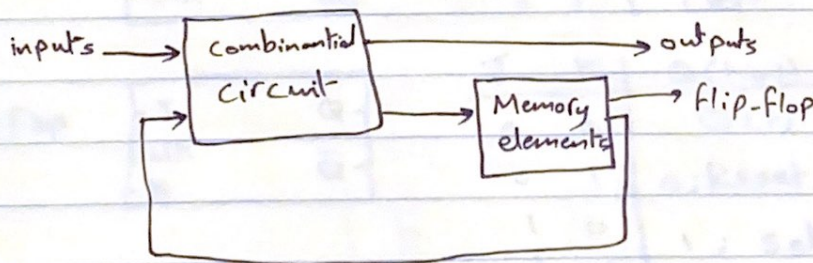 inputs
combinantial
circuit
outputs
Memory
elements
flip-flop